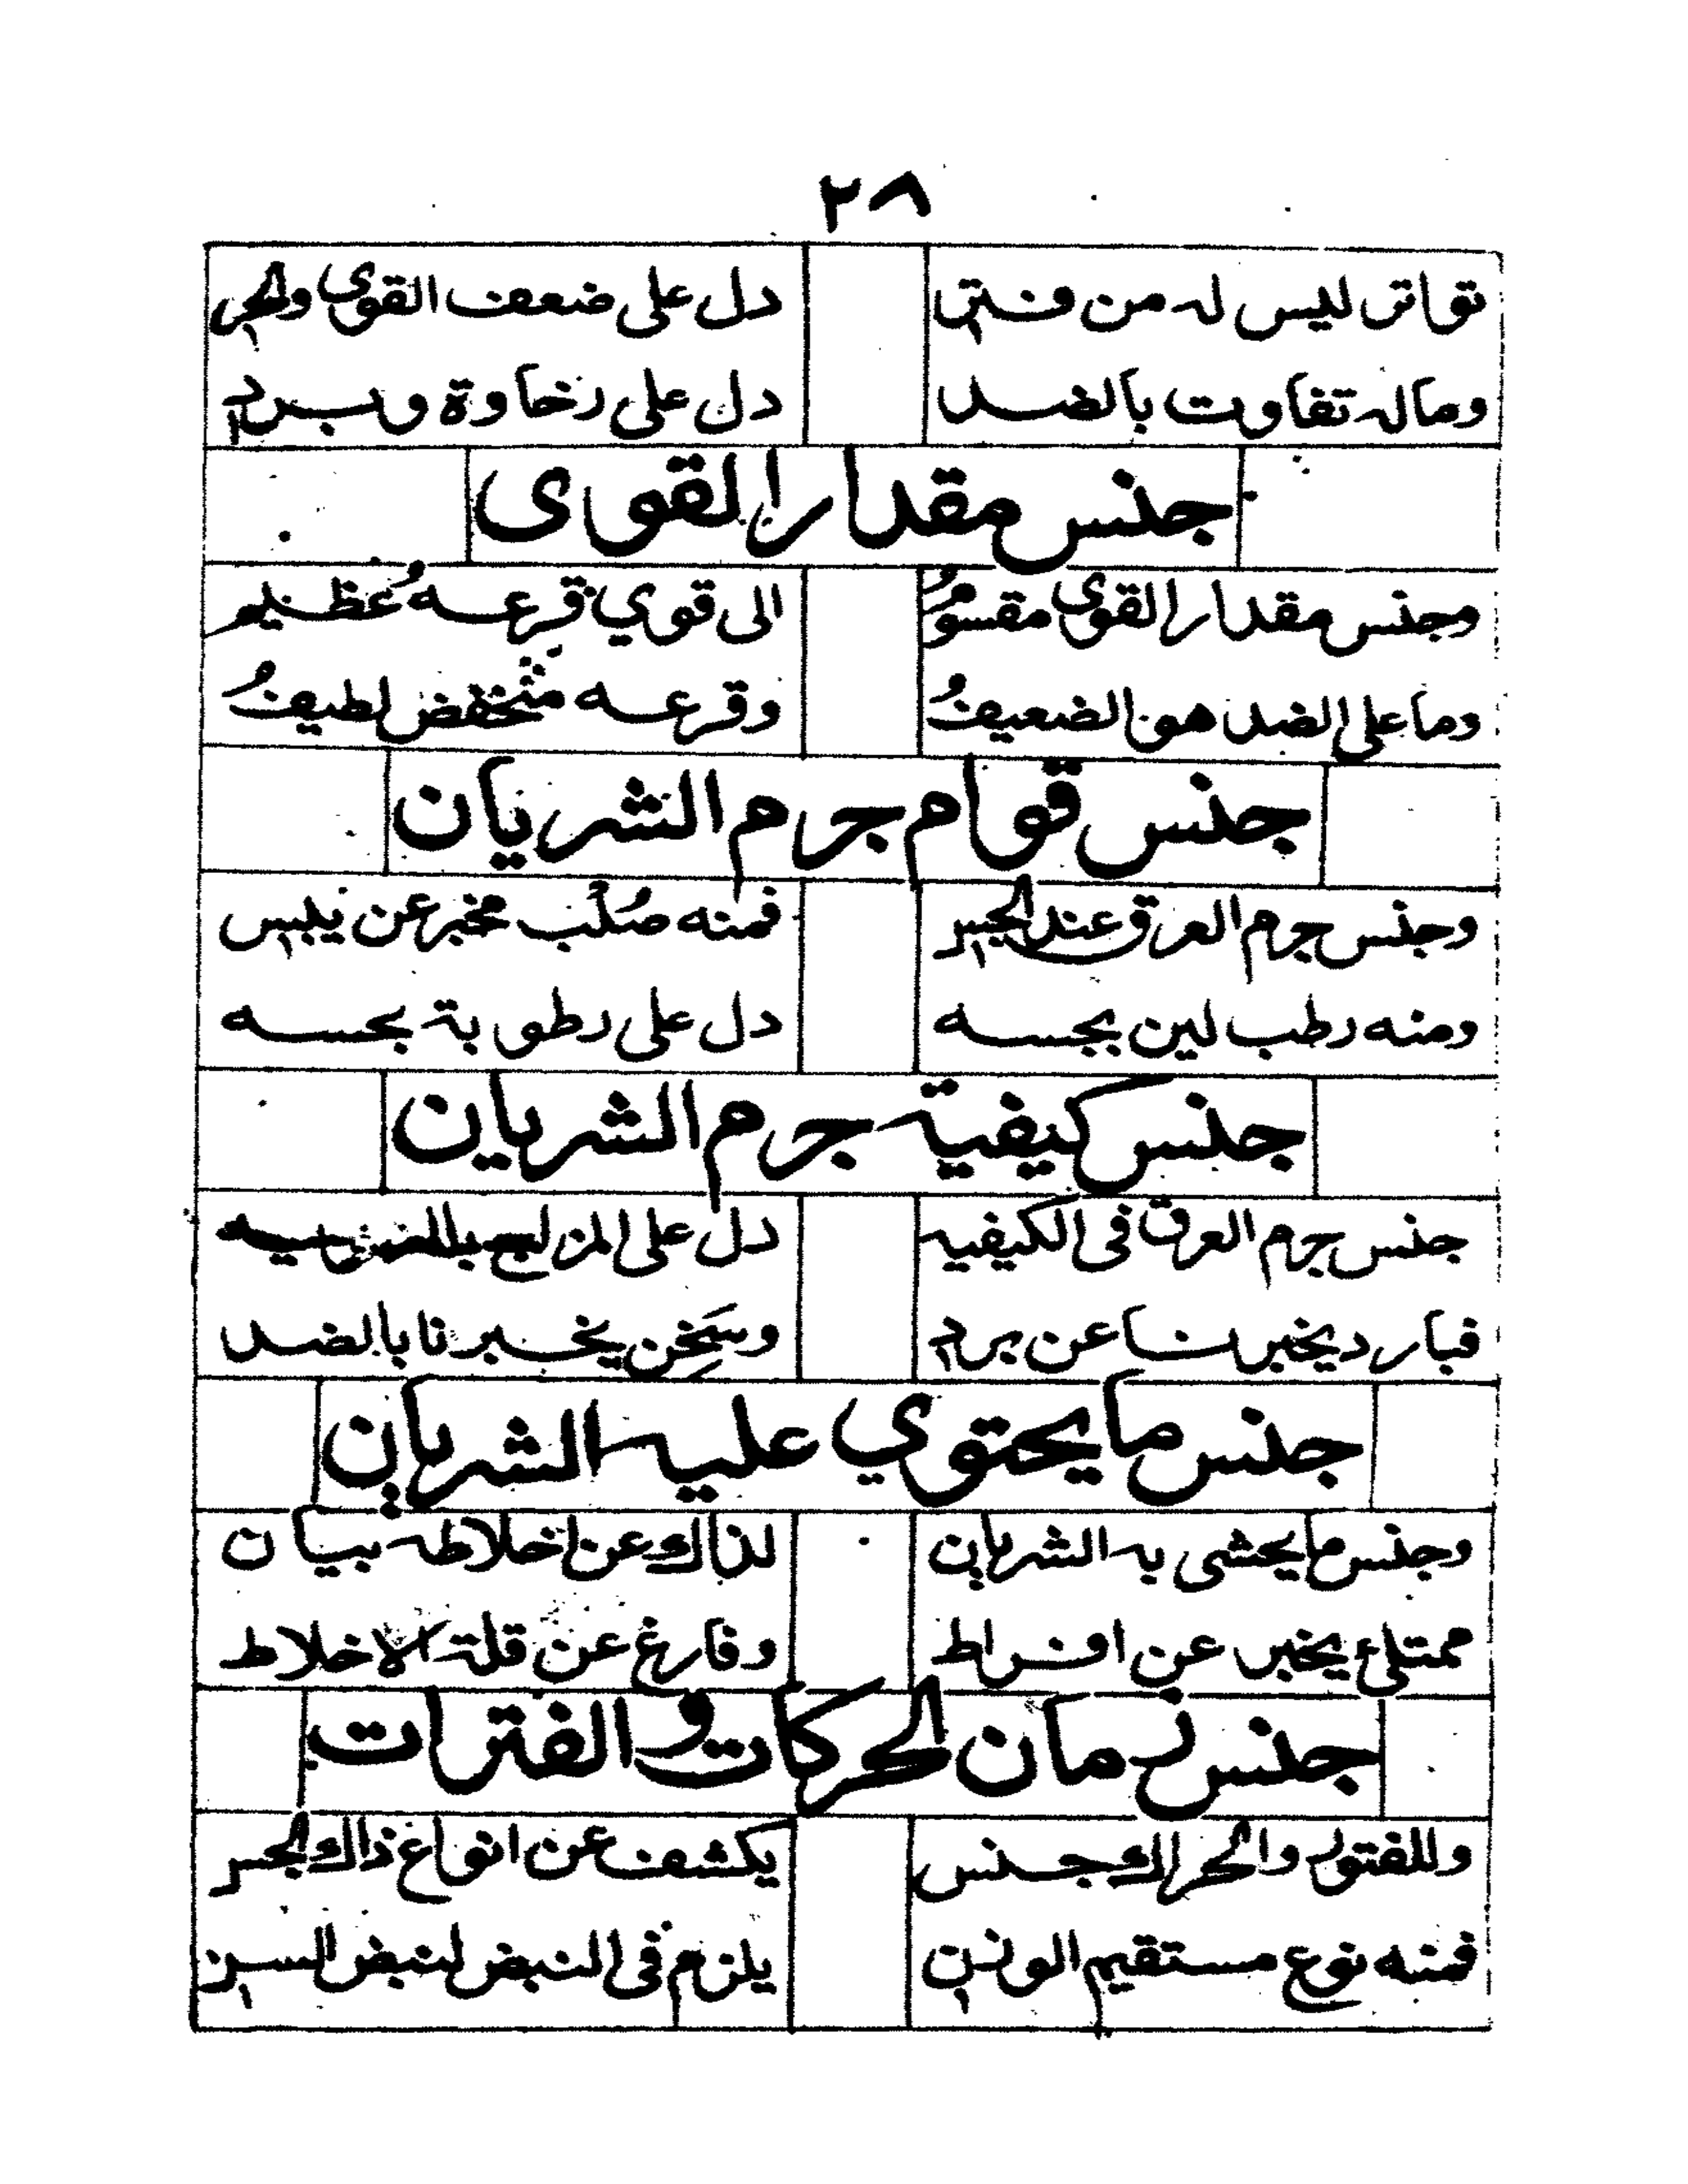 ٢٨
تواتر ليس له من فتر دل على ضعف القوى والحر
وماله تفاوت بالضد دل على رخاوة وبرد
جنس مقدار القوى
وجنس مقدار القوى مقسومُ الى قوي قرعه عُظيمُ
وما على الضد هو الضعيفُ وقرعه منخفض لطيفُ
جنس قوام جرم الشريان
وجنس جرم العرق عند الجس فمنه صُلُب مخبر عن يبس
ومنه رطب لين بجسه دل على رطوبة بحسه
جنس كيفية جرم الشريان
جنس جرم العرق فى الكيفيه دل على المزاج
فبارد يخبرنا عن برد وسَخِن يخبرنا بالضد
جنس ما يحتوي عليه الشريان
وجنس ما يحشى به الشريان لذاك عن اخلاطه بيان
ممتلئ يخبر عن افراط وفارغ عن قلة الاخلاط
جنس زمان الحركات والفترات
وللفتور والحراك جنس يكشف عن انواع ذاك الجس
فمنه نوع مستقيم الوزن يلزم فى النبض لنبض السن